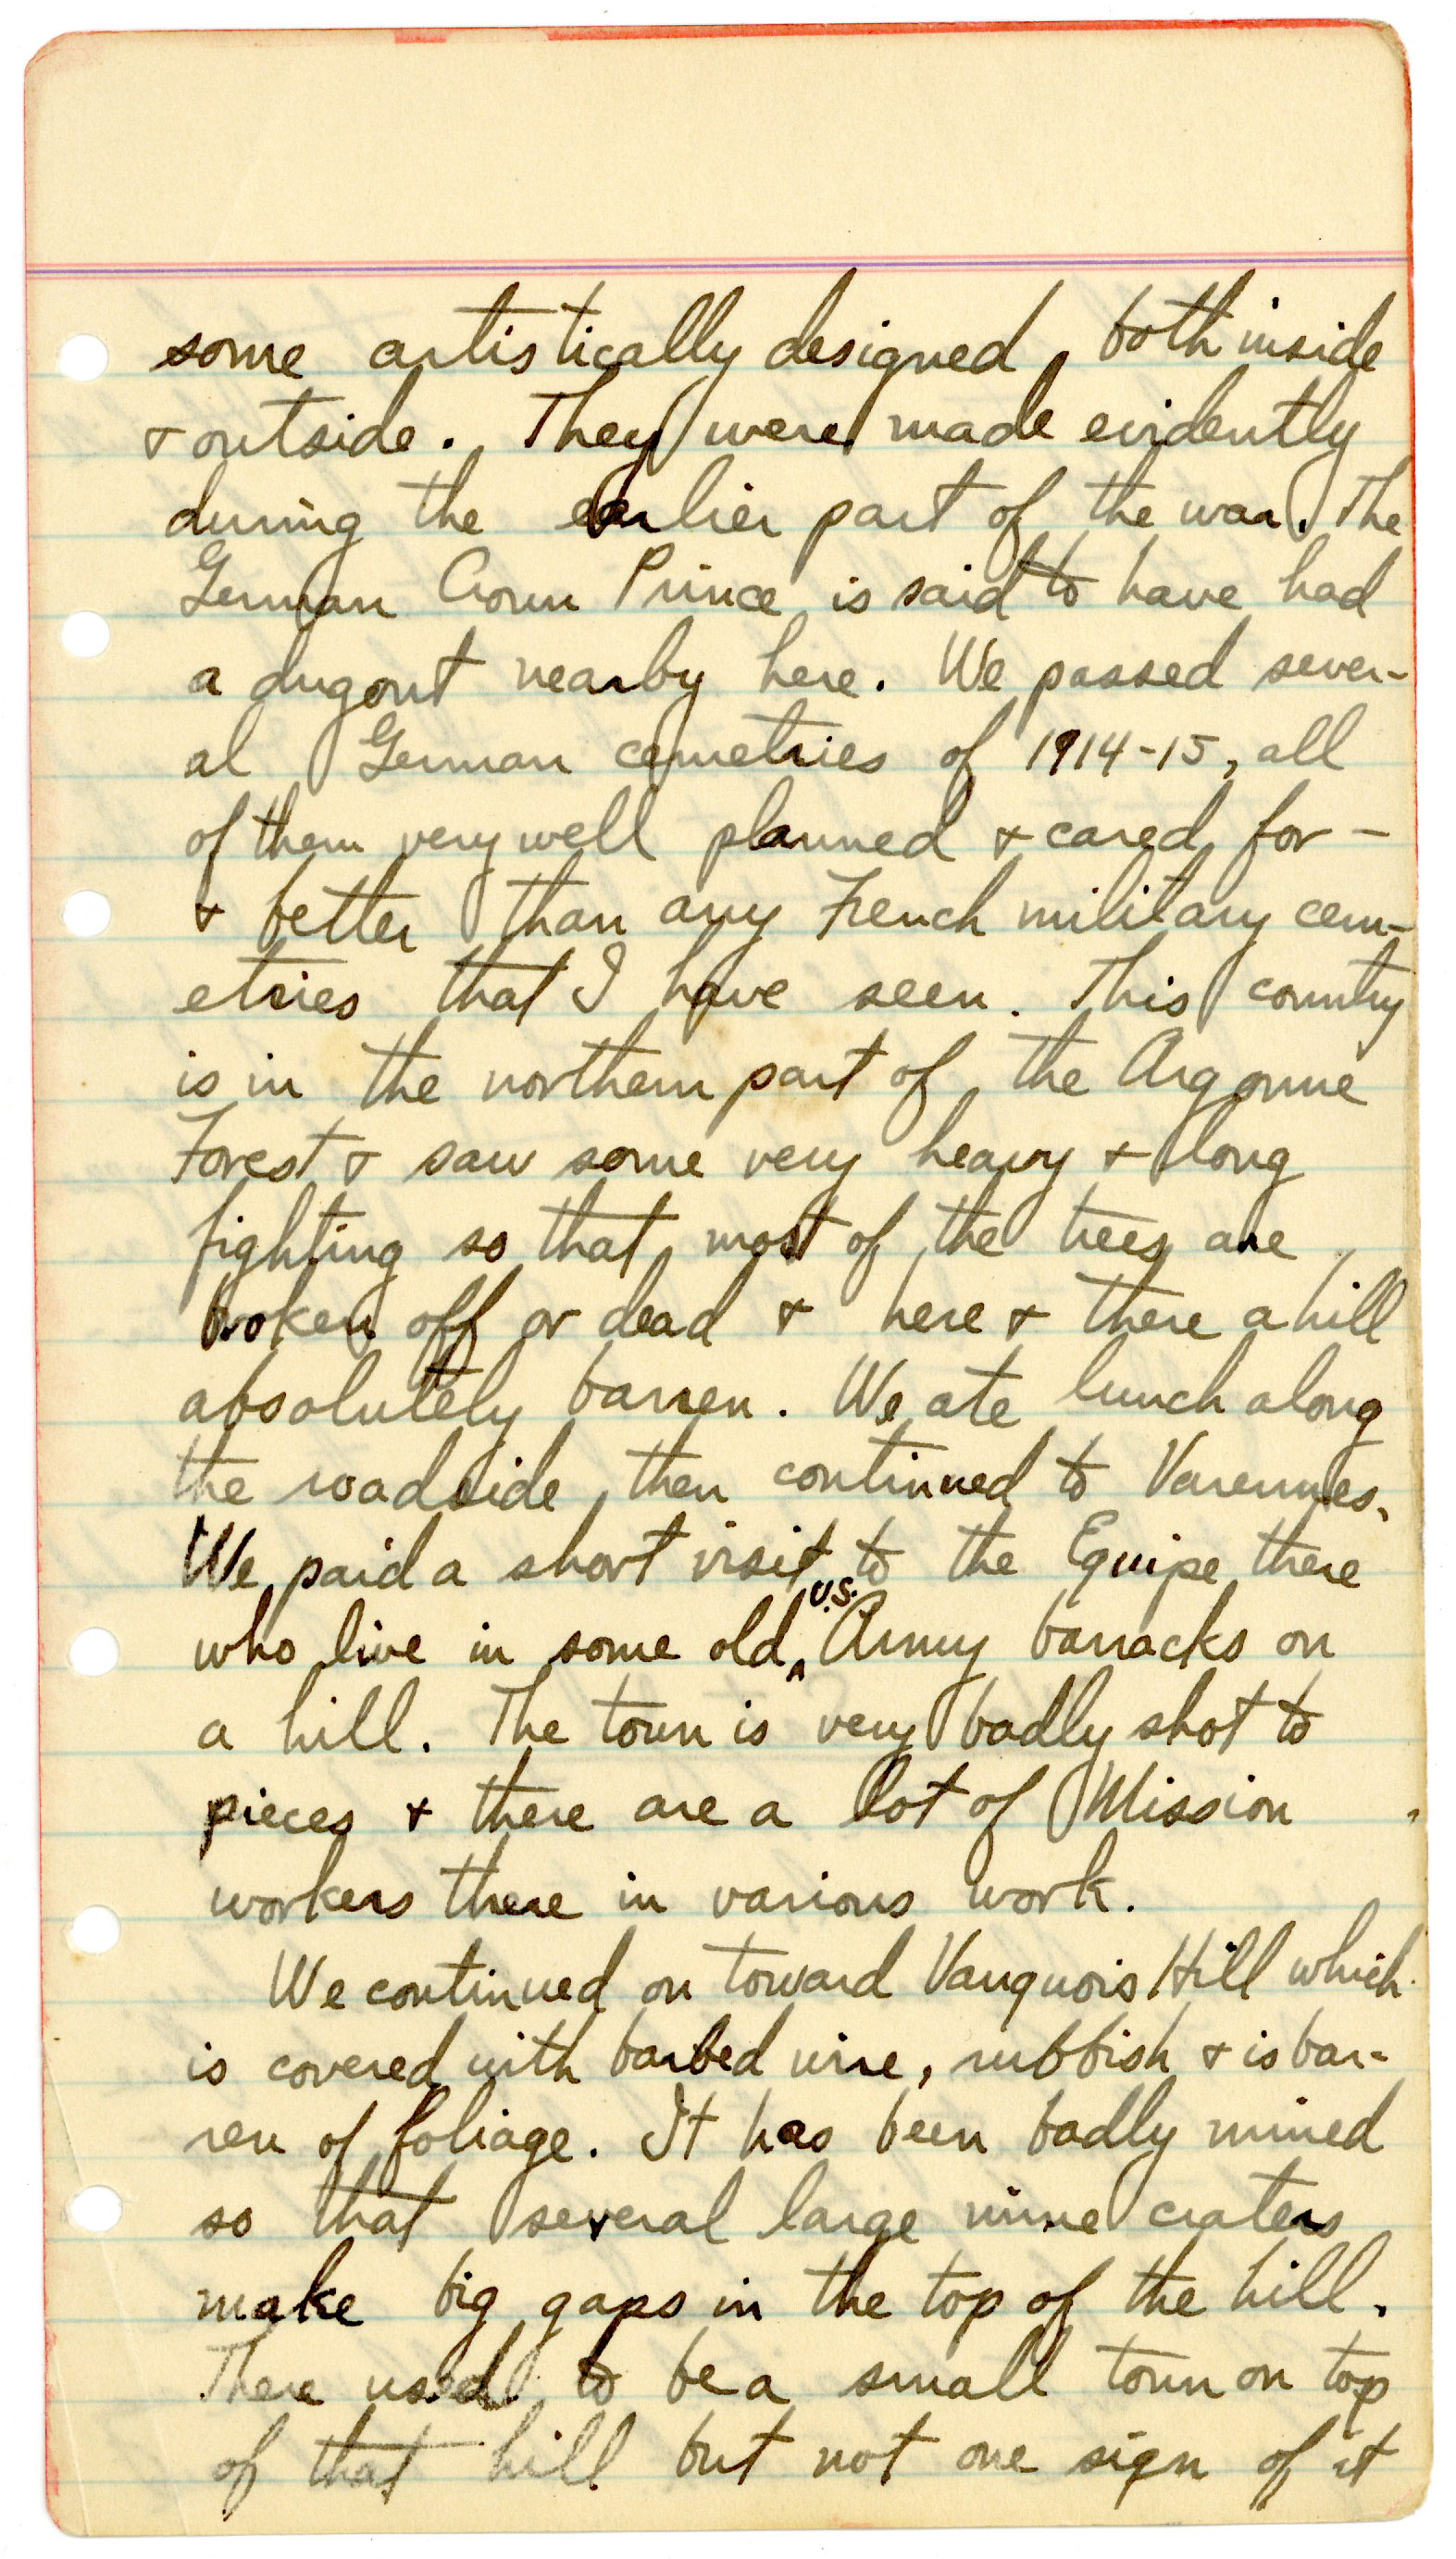 some artistically designed, both inside
& outside. They were made evidently
during the earlier part of the war. The
German Crown Prince is said to have had
a dugout nearby here. We passed sever-
al German cemetries of 1914-15, all
of them very well planned & cared for -
& better than any French military cem-
etries that I have seen. This country
is in the northern part of the Argonne
Forest & saw some very heavy & long
fighting so that most of the trees are
broken off or dead & here & there a hill
absolutely barren. We ate lunch along
the roadside, then continued to Varennes.
We paid a short visit to the Equipe there
who live in some old U.S. Army barracks on
a hill. The town is very badly shot to
pieces & there are a lot of Mission
workers there in various work.
We continued on toward Vauquois Hill which
is covered with barbed wire, rubbish & is bar-
ren of foliage. It has been badly mined
so that several large mine craters
make big gaps in the top of the hill.
There used to be a small town on top
of that hill but not one sign of it